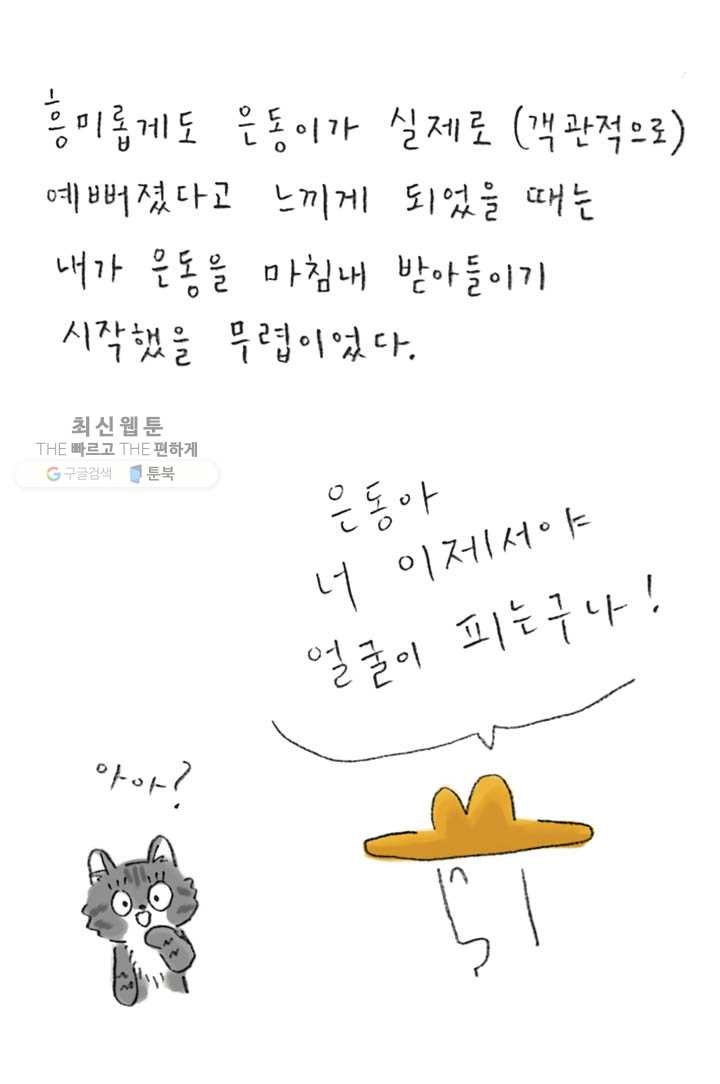 흥미롭게도 은동이가 실제로 (객관적으로)
예뻐졌다고 느끼게 되었을 때는
내가 은동을 마침내 받아들이기
시작했을 무렵이었다.
최신웹툰
THE 빠르고 THE 편하게
구글검색 툰북
은동아
너 이제서야
얼굴이 피는구나!
아아?